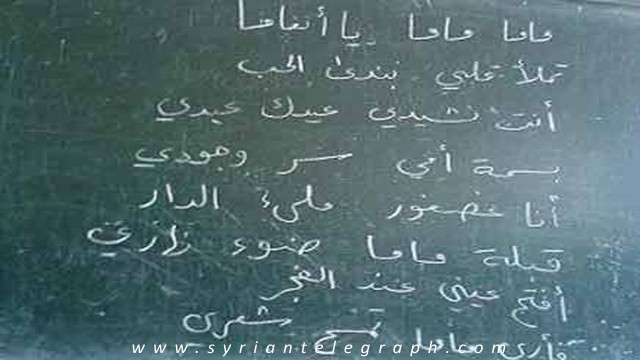 ماما ماما يا أنغاما
تملأ قلبي بندى الحب
أنت نشيدي عيدك عيدي
بسمة أمي سر وجودي
أنا عصفور ملء الدار
قبلة ماما ضوء نهاري
أفتح عيني عند الفجر
أرى ماما تمسح شعري
www.syriantelegraph.com